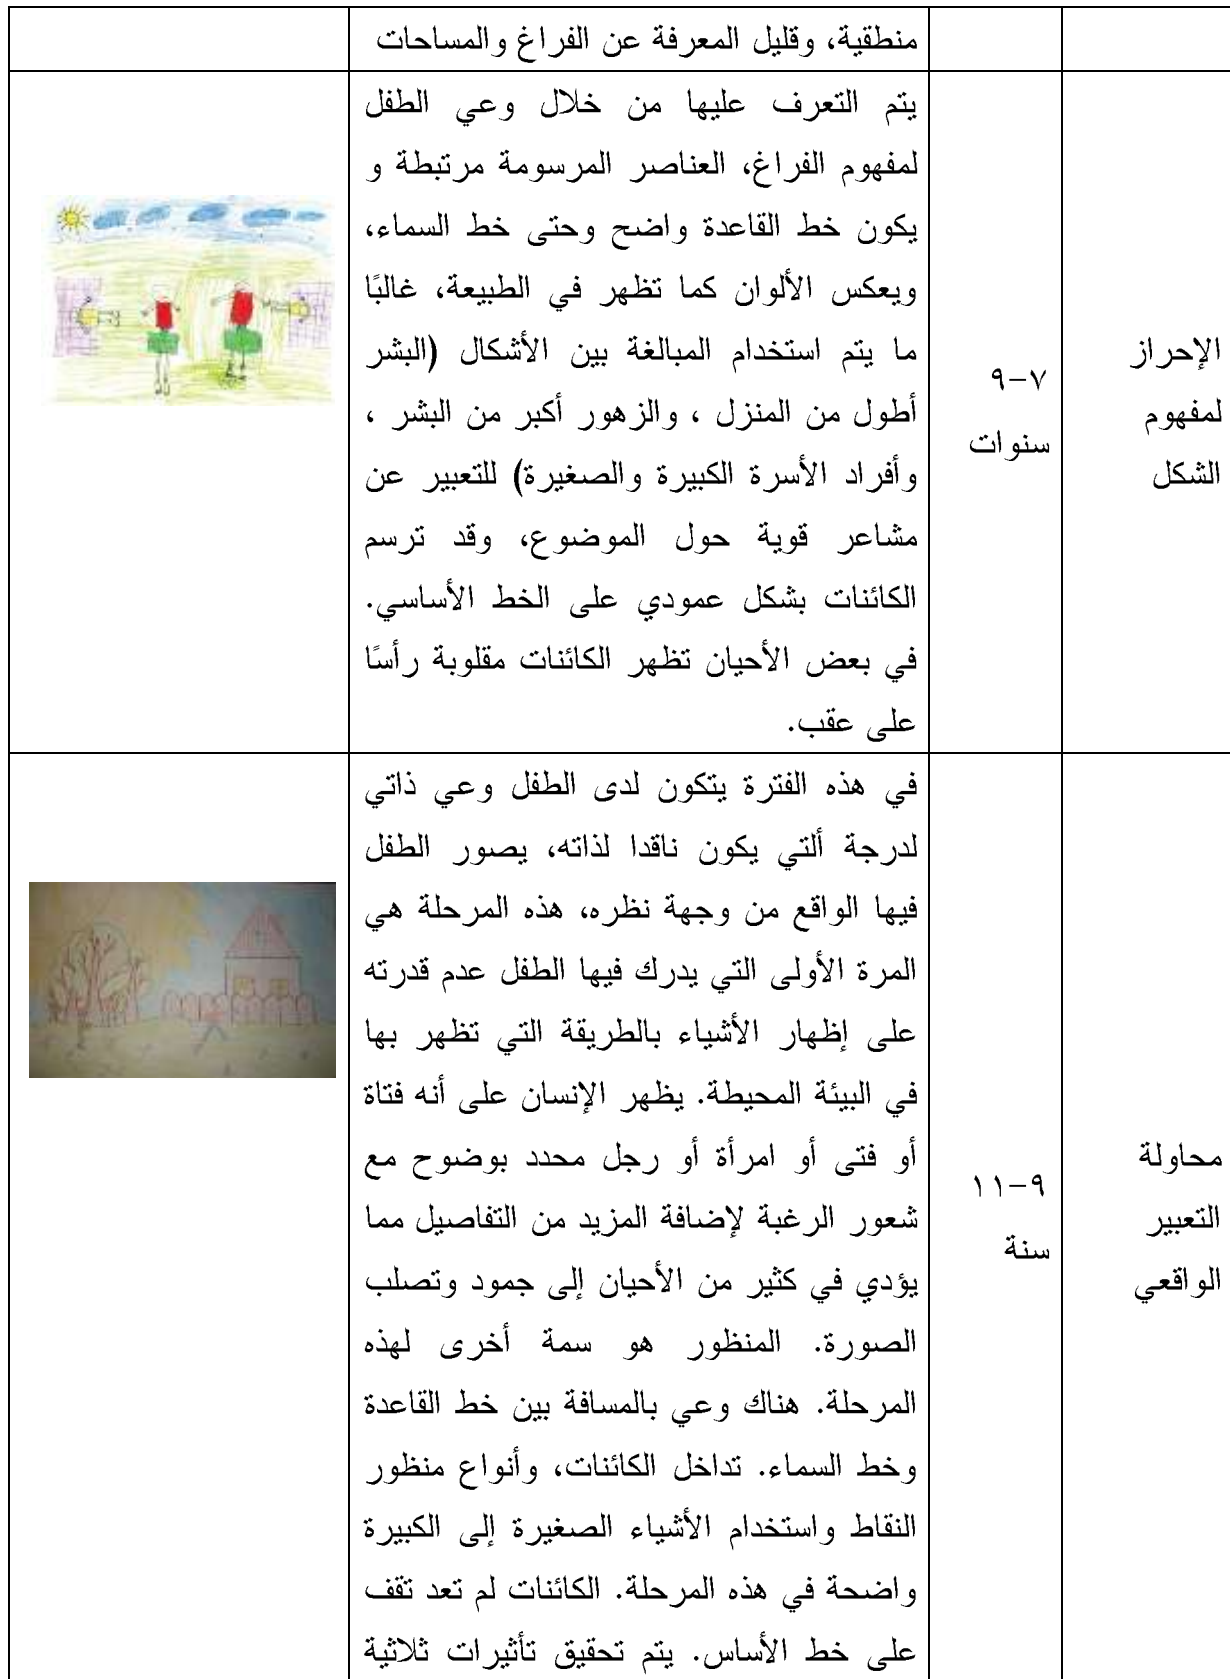 منطقية، وقليل المعرفة عن الفراغ والمساحات
الإحراز
لمفهوم
الشكل
٧-٩
سنوات
يتم التعرف عليها من خلال وعي الطفل
لمفهوم الفراغ، العناصر المرسومة مرتبطة و
يكون خط القاعدة واضح وحتى خط السماء،
ويعكس الألوان كما تظهر في الطبيعة، غالبًا
ما يتم استخدام المبالغة بين الأشكال (البشر
أطول من المنزل ، والزهور أكبر من البشر ،
وأفراد الأسرة الكبيرة والصغيرة) للتعبير عن
مشاعر قوية حول الموضوع، وقد ترسم
الكائنات بشكل عمودي على الخط الأساسي.
في بعض الأحيان تظهر الكائنات مقلوبة رأسًا
على عقب.
محاولة
التعبير
الواقعي
٩-١١
سنة
في هذه الفترة يتكون لدى الطفل وعي ذاتي
لدرجة ألتي يكون ناقدا لذاته، يصور الطفل
فيها الواقع من وجهة نظره، هذه المرحلة هي
المرة الأولى التي يدرك فيها الطفل عدم قدرته
على إظهار الأشياء بالطريقة التي تظهر بها
في البيئة المحيطة. يظهر الإنسان على أنه فتاة
أو فتى أو امرأة أو رجل محدد بوضوح مع
شعور الرغبة لإضافة المزيد من التفاصيل مما
يؤدي في كثير من الأحيان إلى جمود وتصلب
الصورة. المنظور هو سمة أخرى لهذه
المرحلة. هناك وعي بالمسافة بين خط القاعدة
وخط السماء. تداخل الكائنات، وأنواع منظور
النقاط واستخدام الأشياء الصغيرة إلى الكبيرة
واضحة في هذه المرحلة. الكائنات لم تعد تقف
على خط الأساس. يتم تحقيق تأثيرات ثلاثية